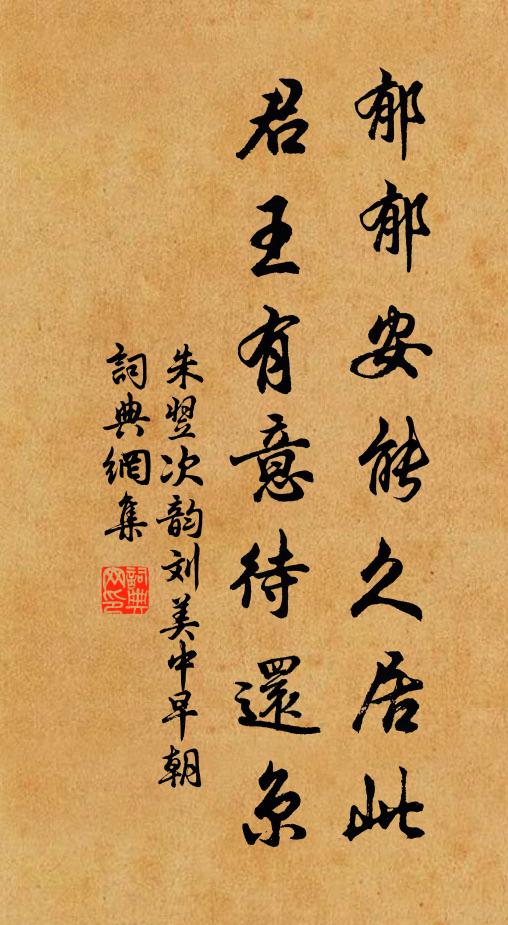 郁郁安能久居此
君王有意待還京
朱翌次韵刘美中早朝
詞典網集
詞典
网印